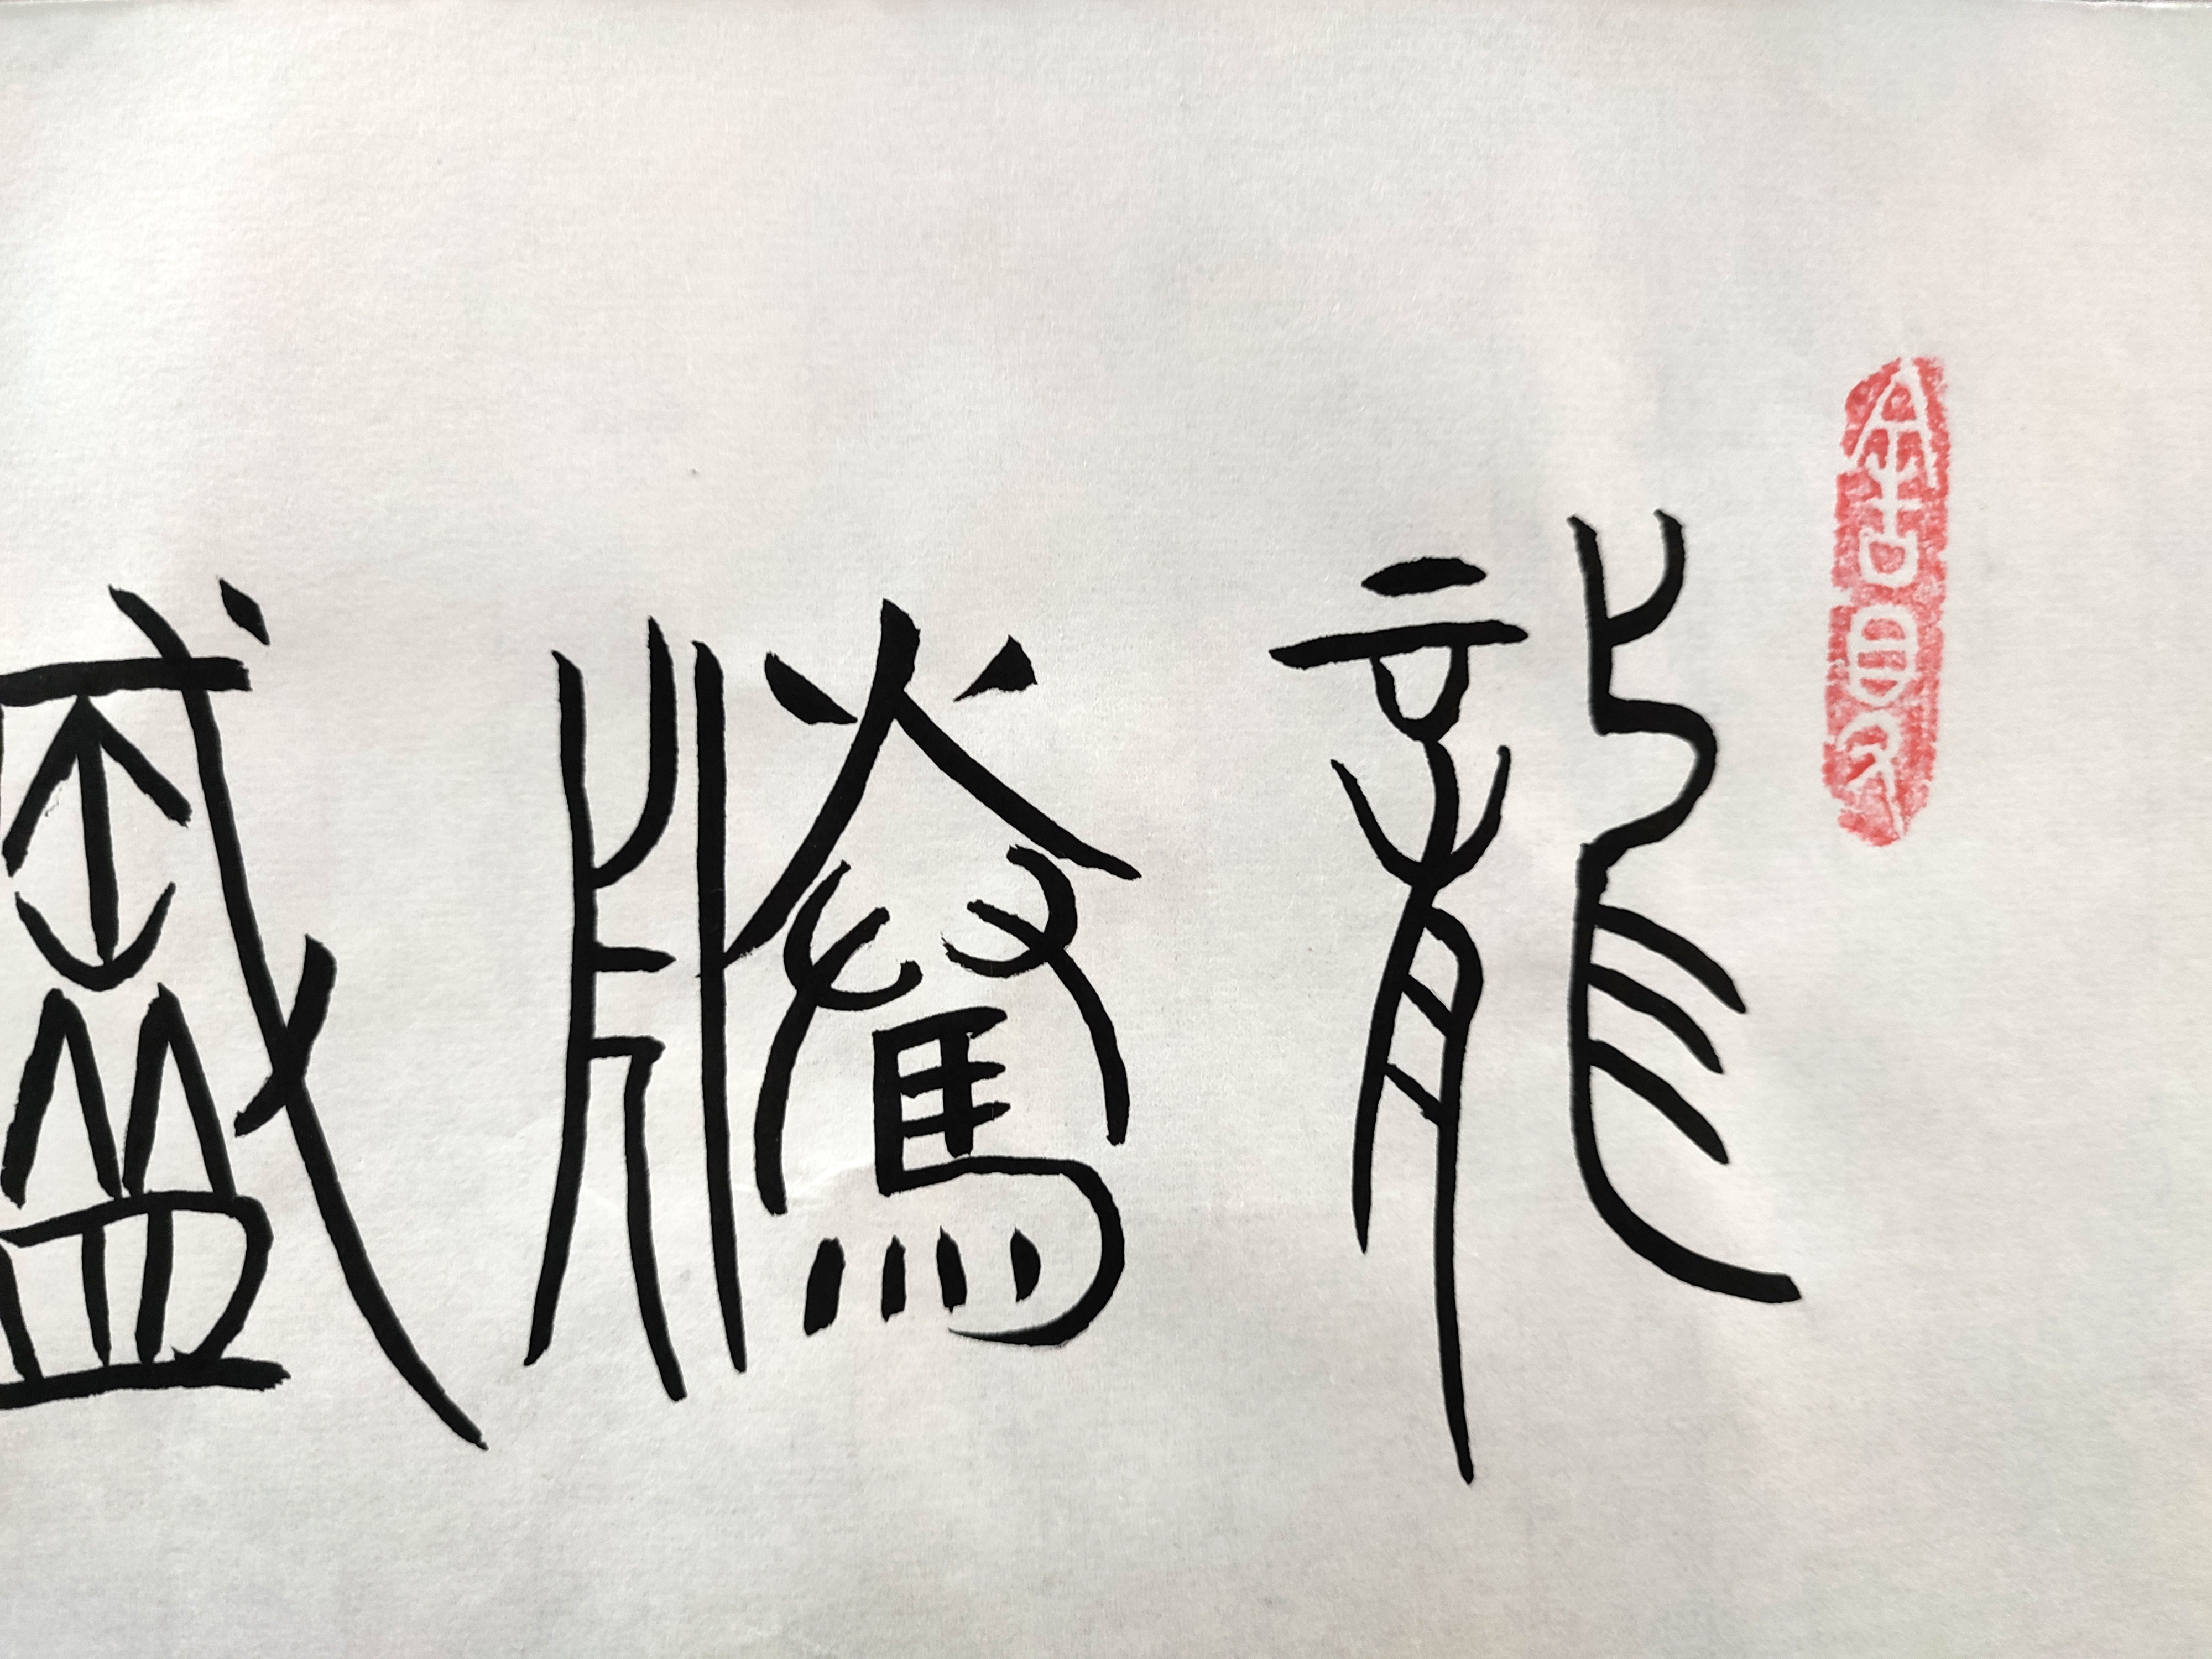 龍騰盛